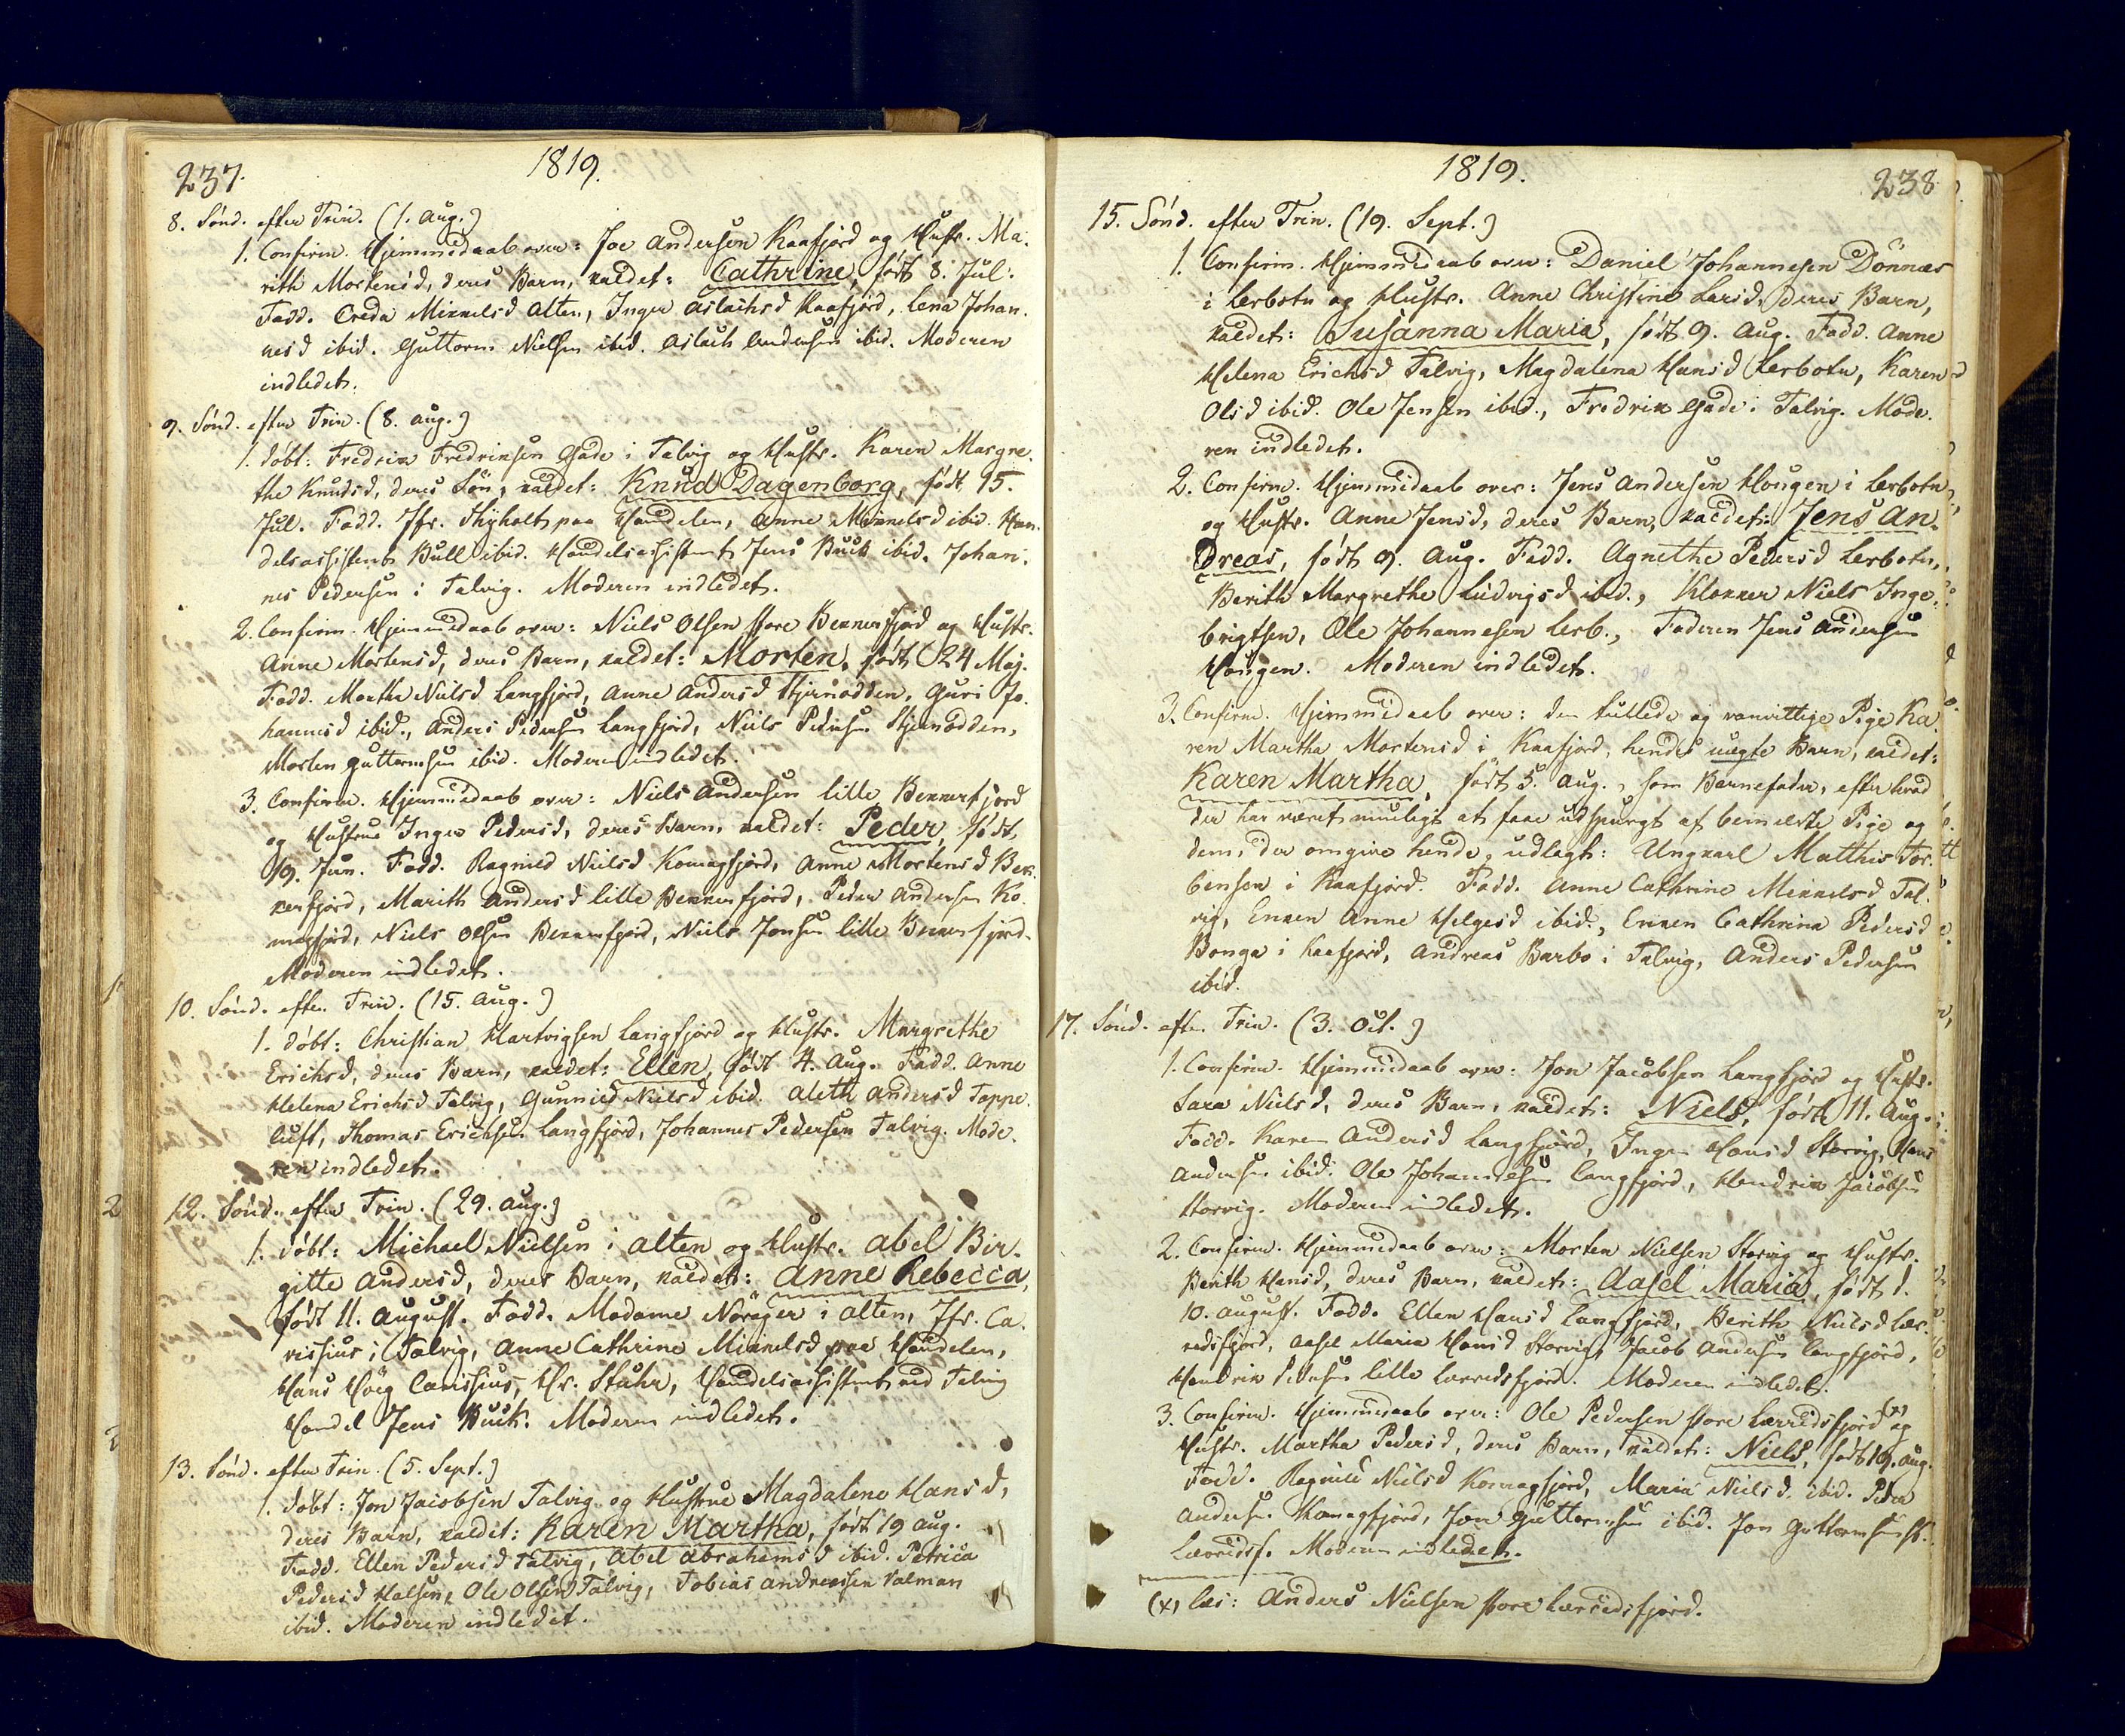 237.
1819.
8. Sönd. efter Trin. (1. Aug.)
1. Confirm. Hjemmedaab over: Joe Andersen Kaafjord og Hustr. Ma-
rith Mortensd, deres Barn, kaldet: Cathrine, født 8. Jul.
Fadd. Creda Mikkelsd Alten, Inger Aslachsd Kaafjord, Lena Johan-
nesd ibid. Guttorm Nielsen ibid. Aslach Andersen ibid. Moderen
indledet.
9. Sönd. efter Trin. (8. Aug.)
1. döbt: Fredrik Fredriksen Gade i Talvig og Hustr. Karen Margre-
the Knudsd, deres Sön, kaldet: Knud Dagenborg, født 15.
Jul. Fadd. Jfr. Thyholt paa Handelen, Anne Mikkelsd ibid. Han-
delsassistent Bull ibid. Handelsassistent Jens Buck ibid. Johan-
nes Pedersen i Talvig. Moderen indledet.
2. Confirm. Hjemmedaab over: Niels Olsen store Bekkerfjord og Hustr.
Anne Mortensd, deres Barn, kaldet: Morten, født 24 Maj.
Fadd. Martha Nielsd Langfjord, Anne Andersd Stjernodden, Guri Jo-
hannesd ibid., Anders Pedersen Langfjord, Niels Pedersen Stjernodden,
Morten Guttormsen ibid. Moderen indledet.
3. Confirm. Hjemmedaab over: Niels Andersen lille Bekkerfjord
og Hustrue Inger Pedersd, deres Barn, kaldet: Peder, født
19. Jun. Fadd. Ragnild Nielsd Komagfjord, Anne Mortensd Bek-
kerfjord, Marith Andersd lille Bekkerfjord, Peder Andersen Ko-
magfjord, Niels Olsen Bekkerfjord, Niels Jonsen lille Bekkerfjord.
Moderen indledet.
10. Sönd. efter Trin. (15. Aug.)
1. döbt: Christian Hartvigsen Langfjord og Hustr. Margrethe
Erichsd, deres Barn, kaldet: Ellen, født 4. Aug. Fadd. Anne
Helena Erichsd Talvig, Gunnild Nielsd ibid. Aleth Andersd Toppe-
luft, Thomas Erichsen Langfjord, Johannes Pedersen Talvig. Mode-
ren indledet.
12. Sönd. efter Trin. (29. Aug.)
1. döbt: Michael Nielsen i Alten og Hustr. Abel Bir-
gitte Andersd, deres Barn, kaldet: Anne Rebecca,
født 11. August. Fadd. Madame Norager i Alten, Jfr. Ca-
rissius i Talvig, Anne Cathrine Mikkelsd paa Handelen,
Hans Höeg Carissius, Hr. Stuhr, Handelsassistent ved Talvig
Handel Jens Buck. Moderen indledet.
13. Sönd. efter Trin. (5. Sept.)
1. döbt: Jon Jacobsen Talvig og Hustrue Magdalene Hansd,
deres Barn, kaldet: Karen Martha, født 19 Aug.
Fadd. Ellen Pedersd Talvig, Abel Abrahamsd ibid. Petrica
Pedersd Halsen, Ole Olsen Talvig, Tobias Andreassen Valman
ibid. Moderen indledet.
1819.
238
15. Sönd. efter Trin. (19. Sept.)
1. Confirm. Hjemmedaab over: Daniel Johannesen Dönnæs
i Lerbotn og Hustr. Anne Christine Larsd, deres Barn,
kaldet: Susanna Maria, født 9. Aug. Fadd. Anne
Helena Erichsd Talvig, Magdalena Hansd Lerbotn, Karen
Olsd ibid. Ole Jensen ibid., Fredrik Gade i Talvig. Mode-
ren indledet.
2. Confirm. Hjemmedaab over: Jens Andersen Hougen i Lerbotn
og Hustr. Anne Jensd, deres Barn, kaldet: Jens An-
dreas, født 9. Aug. Fadd. Agnethe Pedersd Lerbotn,
Berith Margrethe Ludvigsd ibid., Klokker Niels Inge-
brigtsen, Ole Johannesen Lerb., Faderen Jens Andersen
Hougen. Moderen indledet.
3. Confirm. Hjemmedaab over: den tullede og vanvittige Pige Ka-
ren Martha Mortensd i Kaafjord, hendes uægte Barn, kaldet:
Karen Martha, født 5. Aug., som Barnefader, efter hvad
der har været mueligt at faae udspurgt af bemeldte Pige og
dem, der omgive hende, udlagt: Ungkarl Mathis Tor-
bensen i Kaafjord. Fadd. Anne Cathrine Mikkelsd Tal-
vig, Enken Anne Helgesd ibid., Enken Cathrina Pedersd
Bonga i Kaafjord, Andreas Barbo i Talvig, Anders Pedersen
ibid.
17. Sönd. efter Trin. (3. Oct.)
1. Confirm. Hjemmedaab over: Jon Jacobsen Langfjord og Hustr.
Sara Nielsd, deres Barn, kaldet: Niels, født 11. Aug.
Fadd. Karen Andersd Langfjord, Inger Hansd Storvig, Hans
Andersen ibid. Ole Johannesen Langfjord, Hendrik Jacobsen
Storvig. Moderen indledet.
2. Confirm. Hjemmedaab over: Morten Nielsen Storvig og Hustr.
Berith Hansd, deres Barn, kaldet: Aasel Maria, født d.
10. August. Fadd. Ellen Hansd Langfjord, Berith Nielsd Lær-
redsfjord, Aasel Maria Hansd Storvig, Jacob Andersen Langfjord,
Hendrik Pedersen lille Lærredsfjord. Moderen indledet.
3. Confirm. Hjemmedaab over: Ole Pedersen store Lærredsfjord (x) og
Hustr. Martha Pedersd, deres Barn, kaldet: Niels, født 19. Aug.
Fadd. Ragnild Nielsd Komagfjord, Maria Nielsd ibid. Peder
Andersen Komagfjord, Jon Guttormsen ibid. Jon Guttormsen st.
Lærredsf. Moderen indledet.
(x) læs: Anders Nielsen store Lærredsfjord.